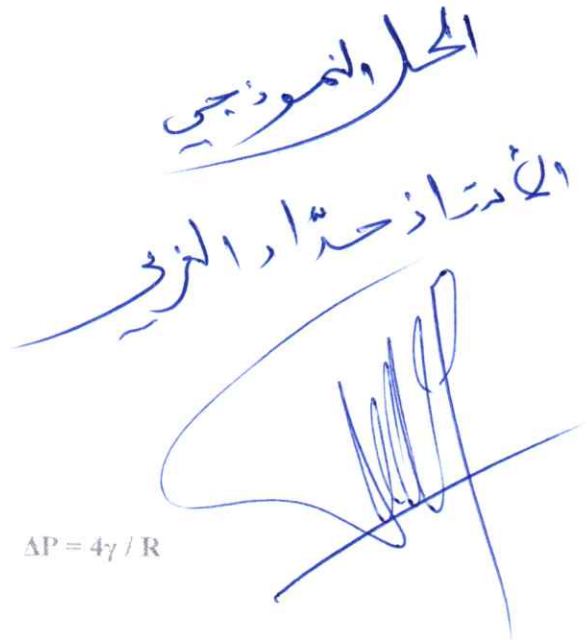 الحل النموذجي
الأستاذ حدّاد العربي
ΔP = 4γ / R